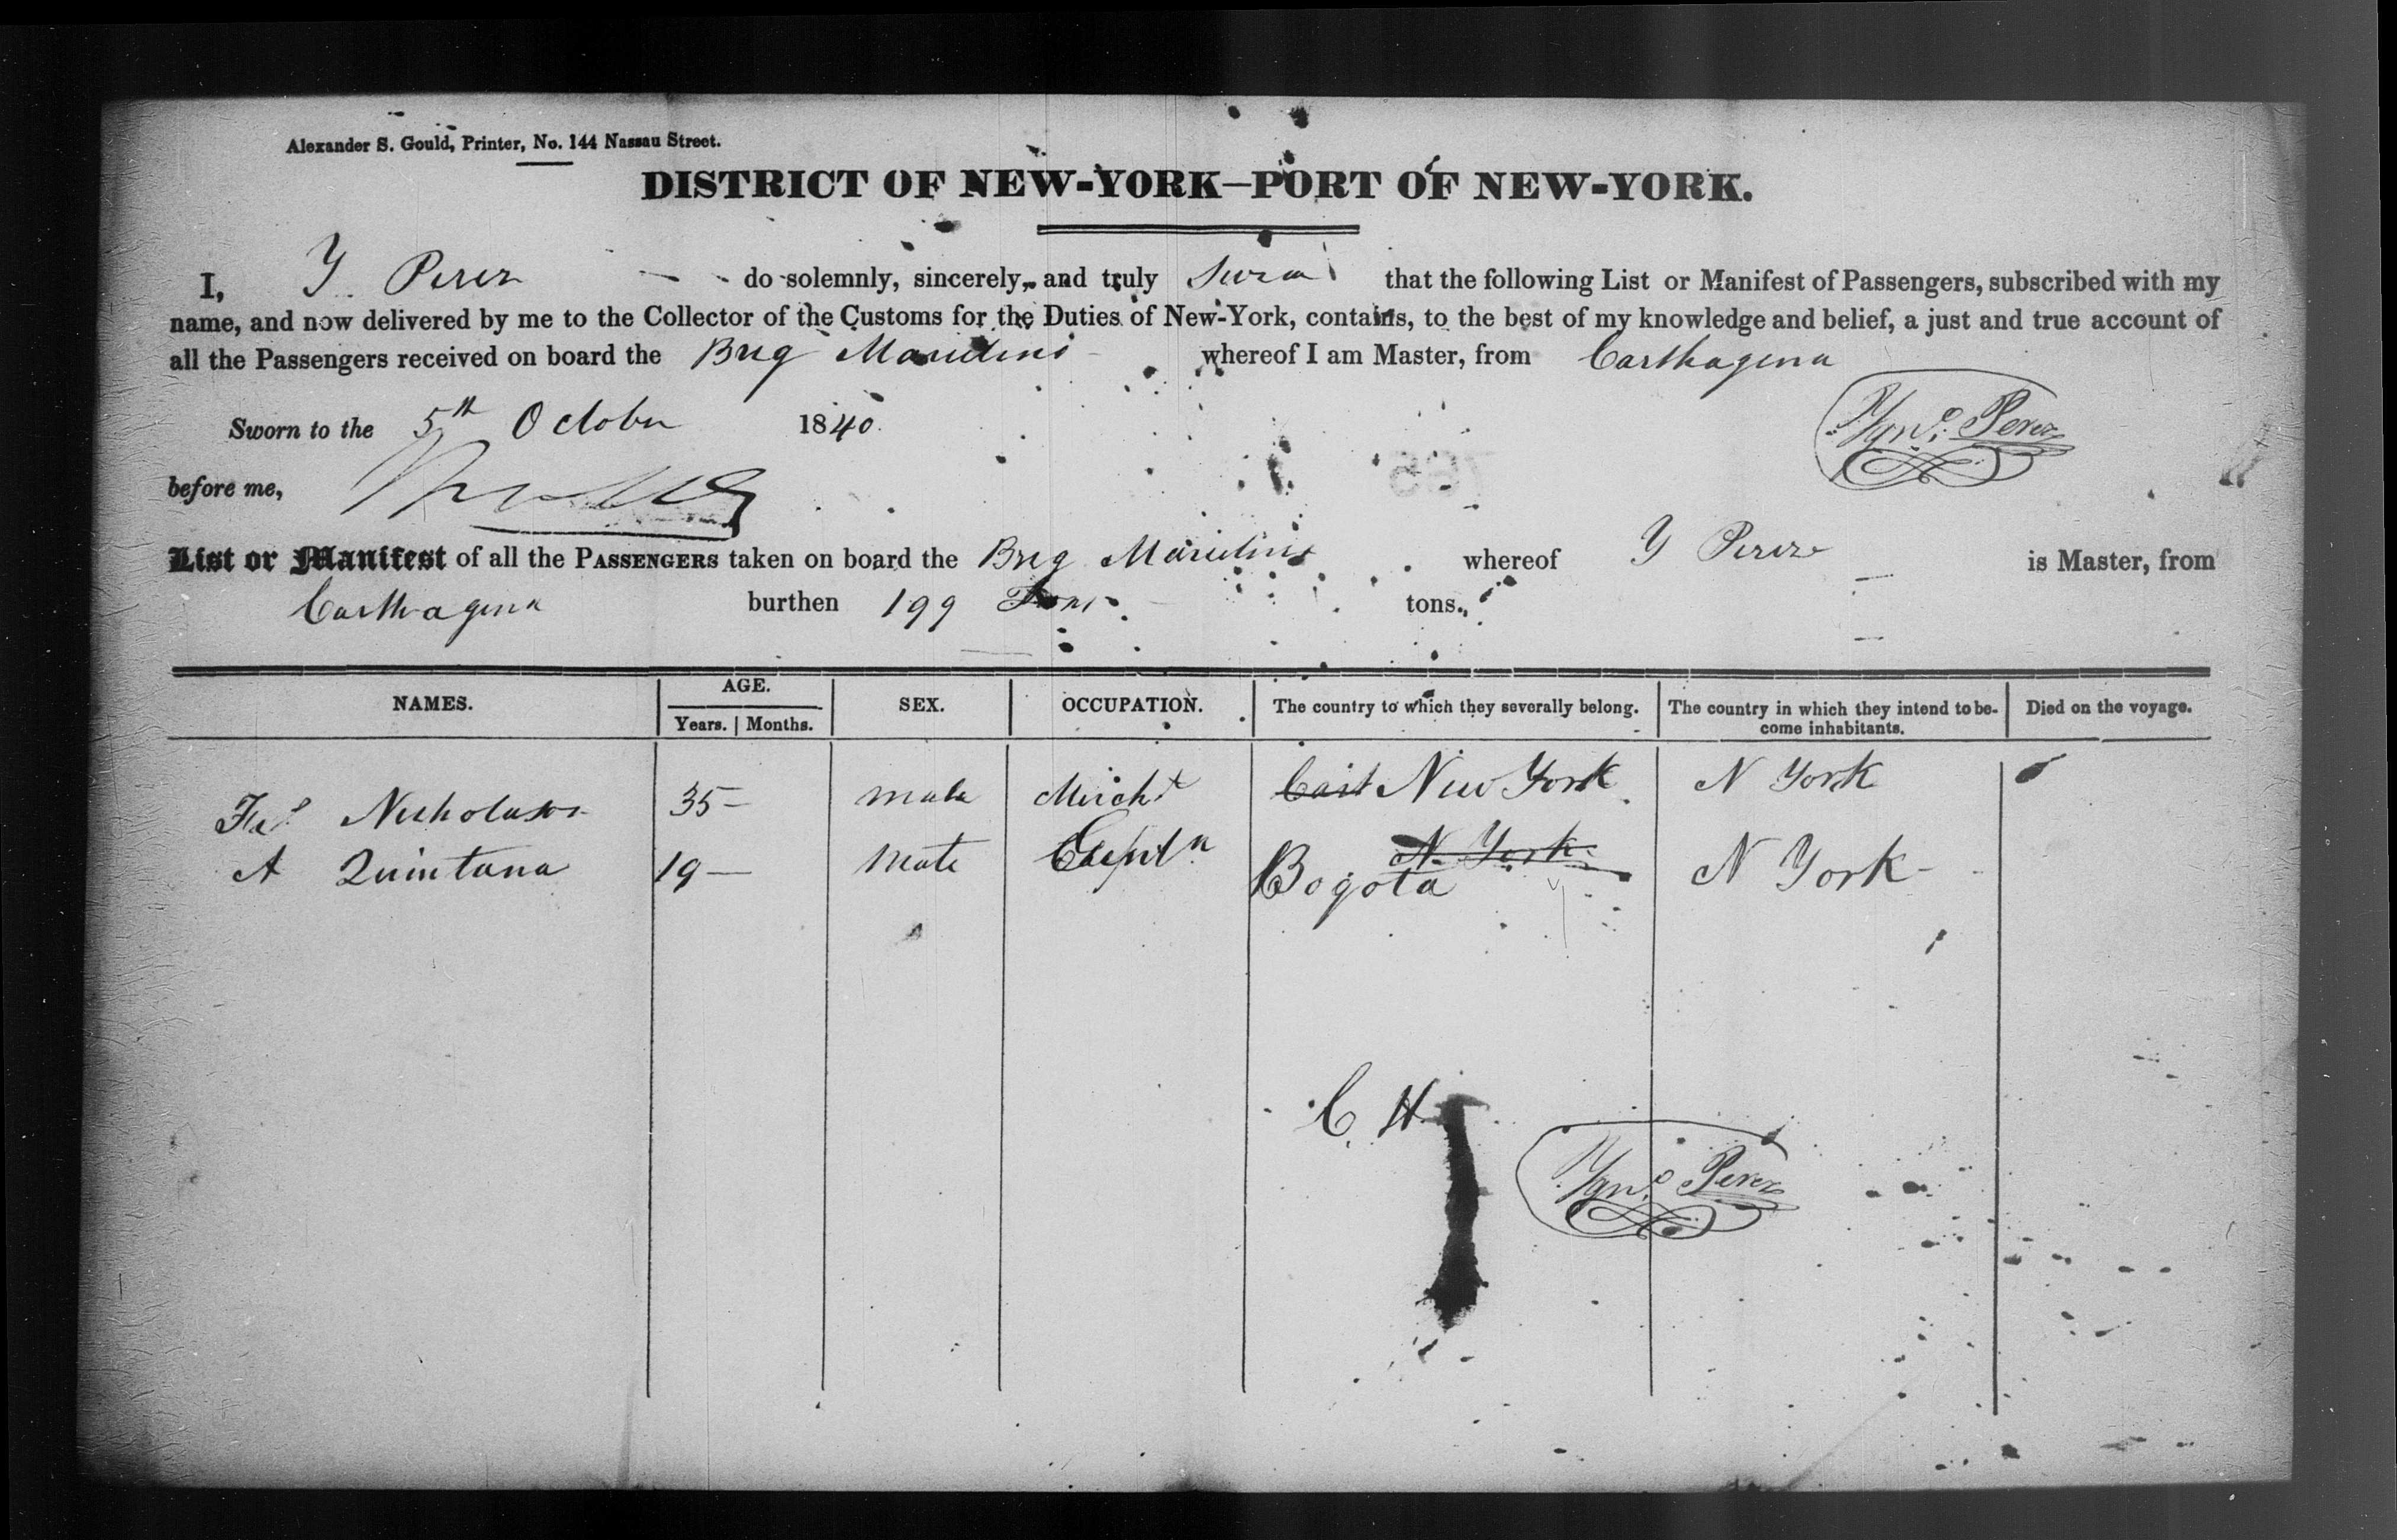 Alexander S. Gould, Printer, No. 144 Nassau Street.
DISTRICT OF NEW-YORK—PORT OF NEW-YORK.
I, Y Perez do solemnly, sincerely, and truly swear that the following List or Manifest of Passengers, subscribed with my
name, and now delivered by me to the Collector of the Customs for the Duties of New-York, contains, to the best of my knowledge and belief, a just and true account of
all the Passengers received on board the Brig whereof I am Master, from Carthagena
Sworn to the 5th October 1840. Ygno. Perez
before me,
List or Manifest of all the PASSENGERS taken on board the Brig whereof Y Perez is Master, from
Carthagena burthen 199 Tons tons.
NAMES. AGE. SEX. OCCUPATION. The country to which they severally belong. The country in which they intend to be- Died on the voyage.
Years. Months. come inhabitants.
Nicholason 35 — male Mercht New York N York
A Quintana 19 — male N York N York
Bogota
C. H.
Ygno. Perez